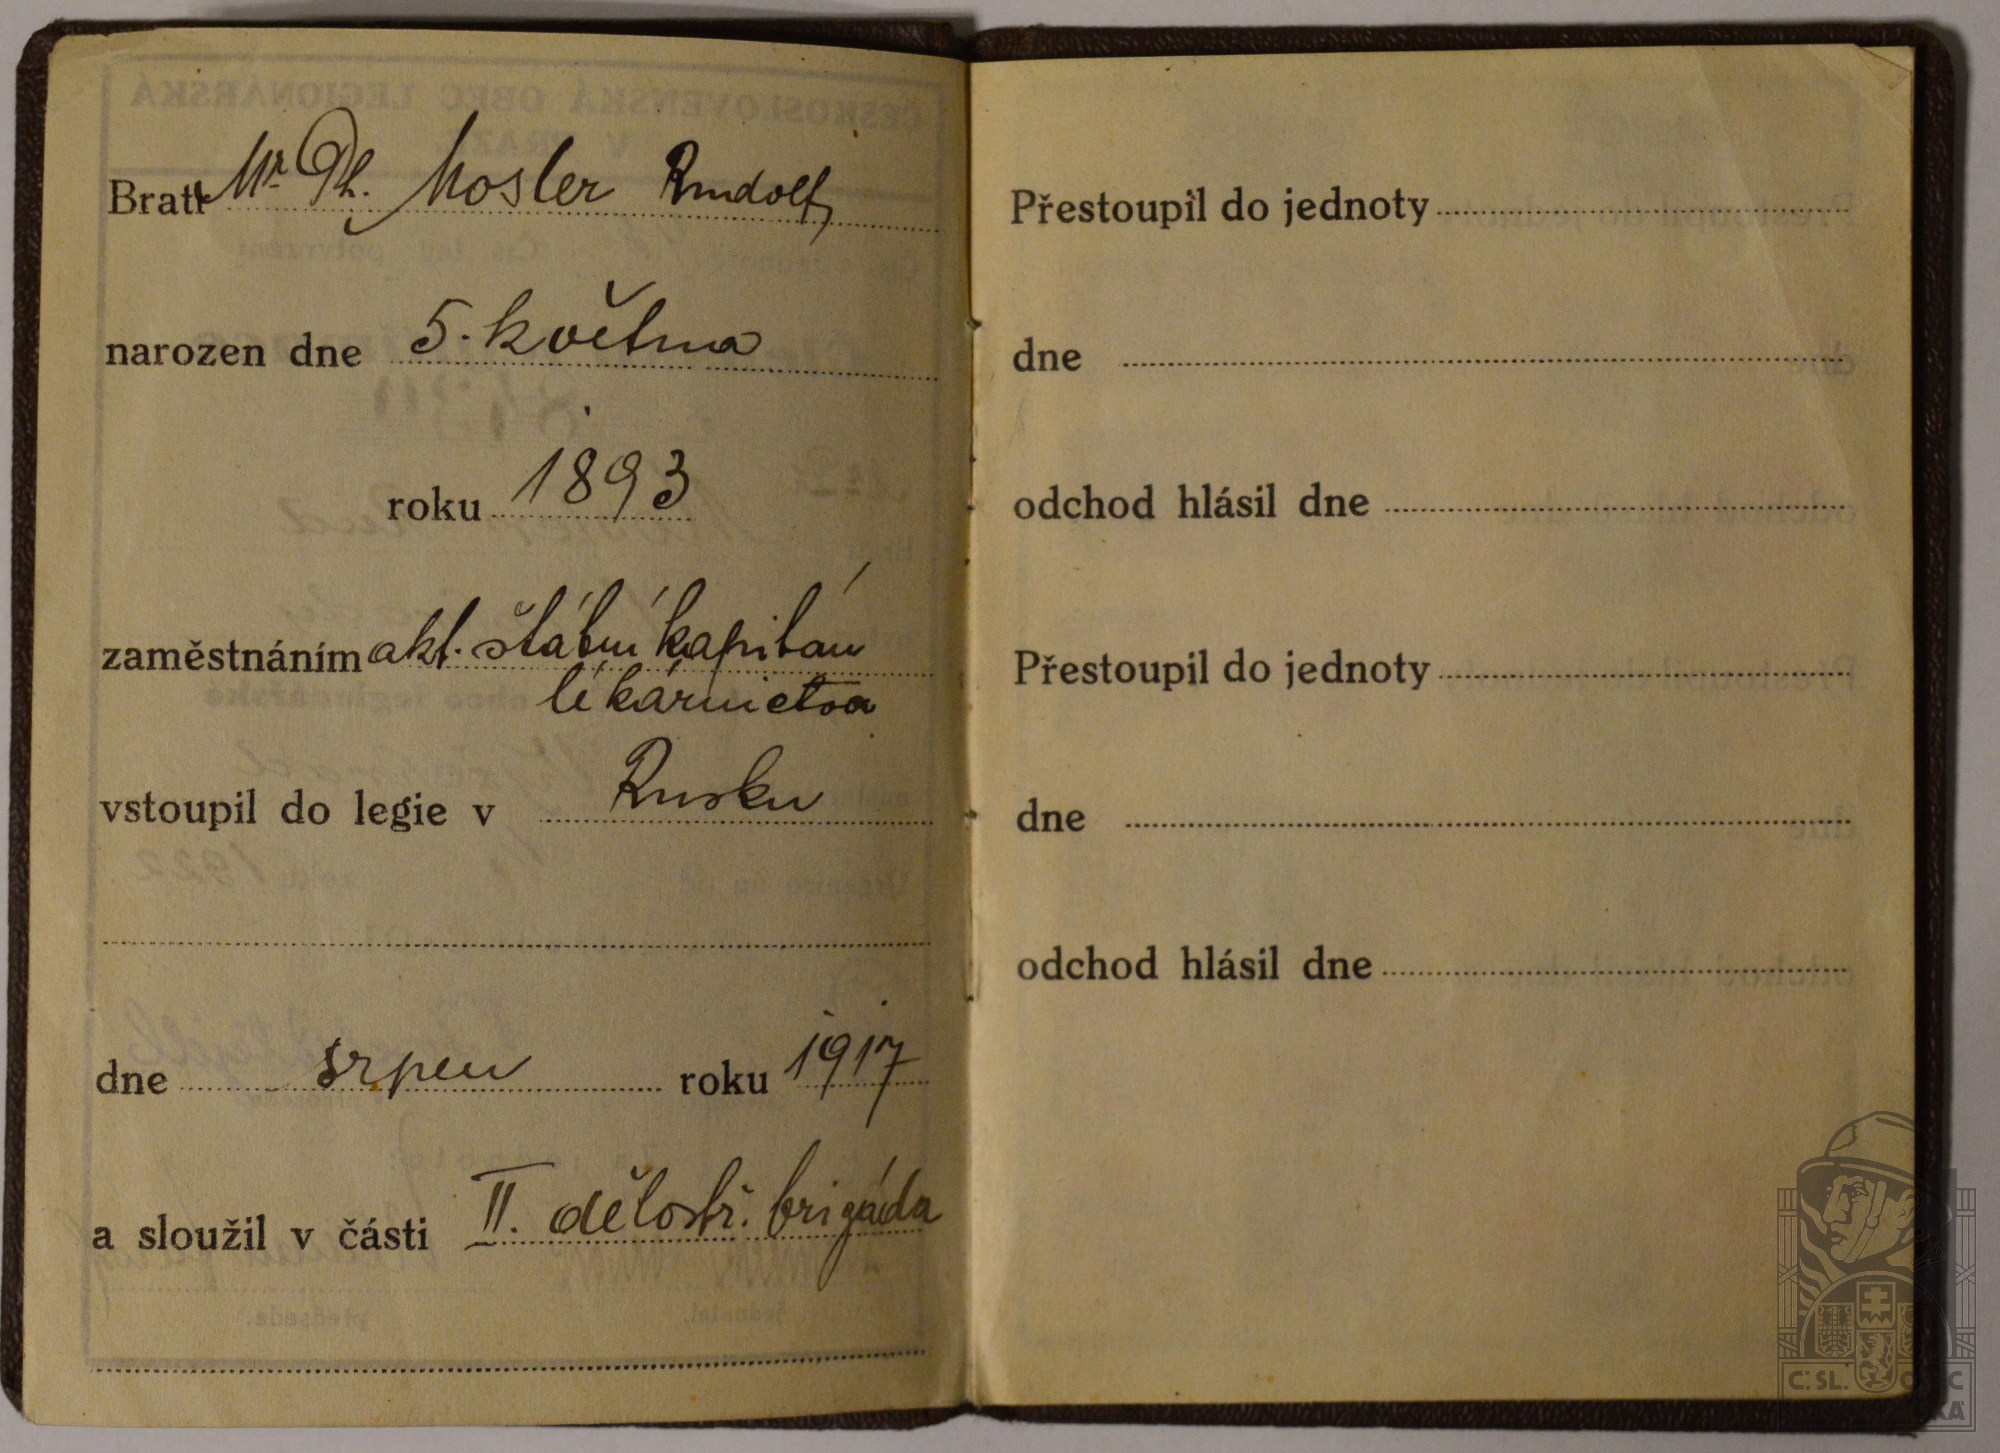 Bratr Mr. Ph. Mosler Rudolf,
narozen dne 5. května
roku 1893
zaměstnáním akt. štábní kapitán
lékárnictva
vstoupil do legie v Rusku
dne srpen roku 1917
a sloužil v části II. dělostř. brigáda
Přestoupil do jednoty
dne
odchod hlásil dne
Přestoupil do jednoty
dne
odchod hlásil dne
Č. SL. OBEC